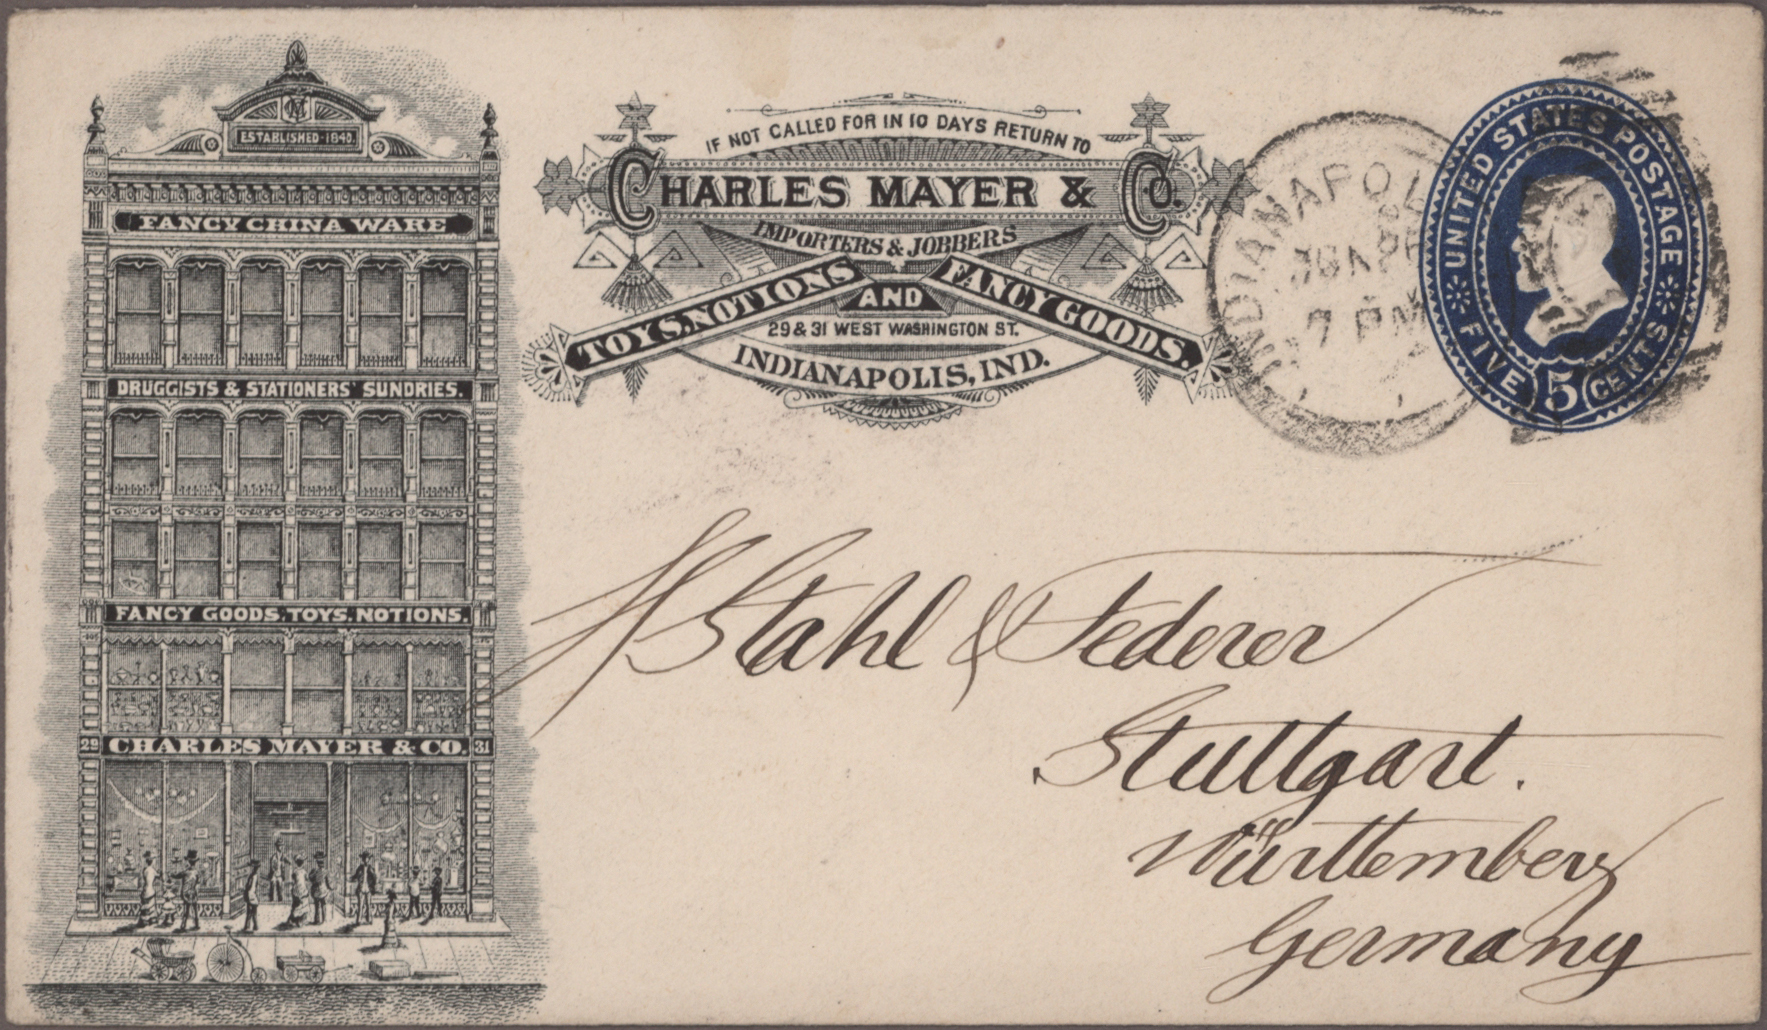 ESTABLISHED-1840
FANCY CHINA WARE
DRUGGISTS & STATIONERS' SUNDRIES.
FANCY GOODS, TOYS, NOTIONS.
29 CHARLES MAYER & CO. 31
IF NOT CALLED FOR IN 10 DAYS RETURN TO
CHARLES MAYER & CO.
IMPORTERS & JOBBERS
TOYS, NOTIONS AND FANCY GOODS.
29 & 31 WEST WASHINGTON ST.
INDIANAPOLIS, IND.
INDIANAPOL
7 PM
UNITED STATES POSTAGE
FIVE 5 CENTS
Stahl & Federer
Stuttgart.
Württemberg
Germany